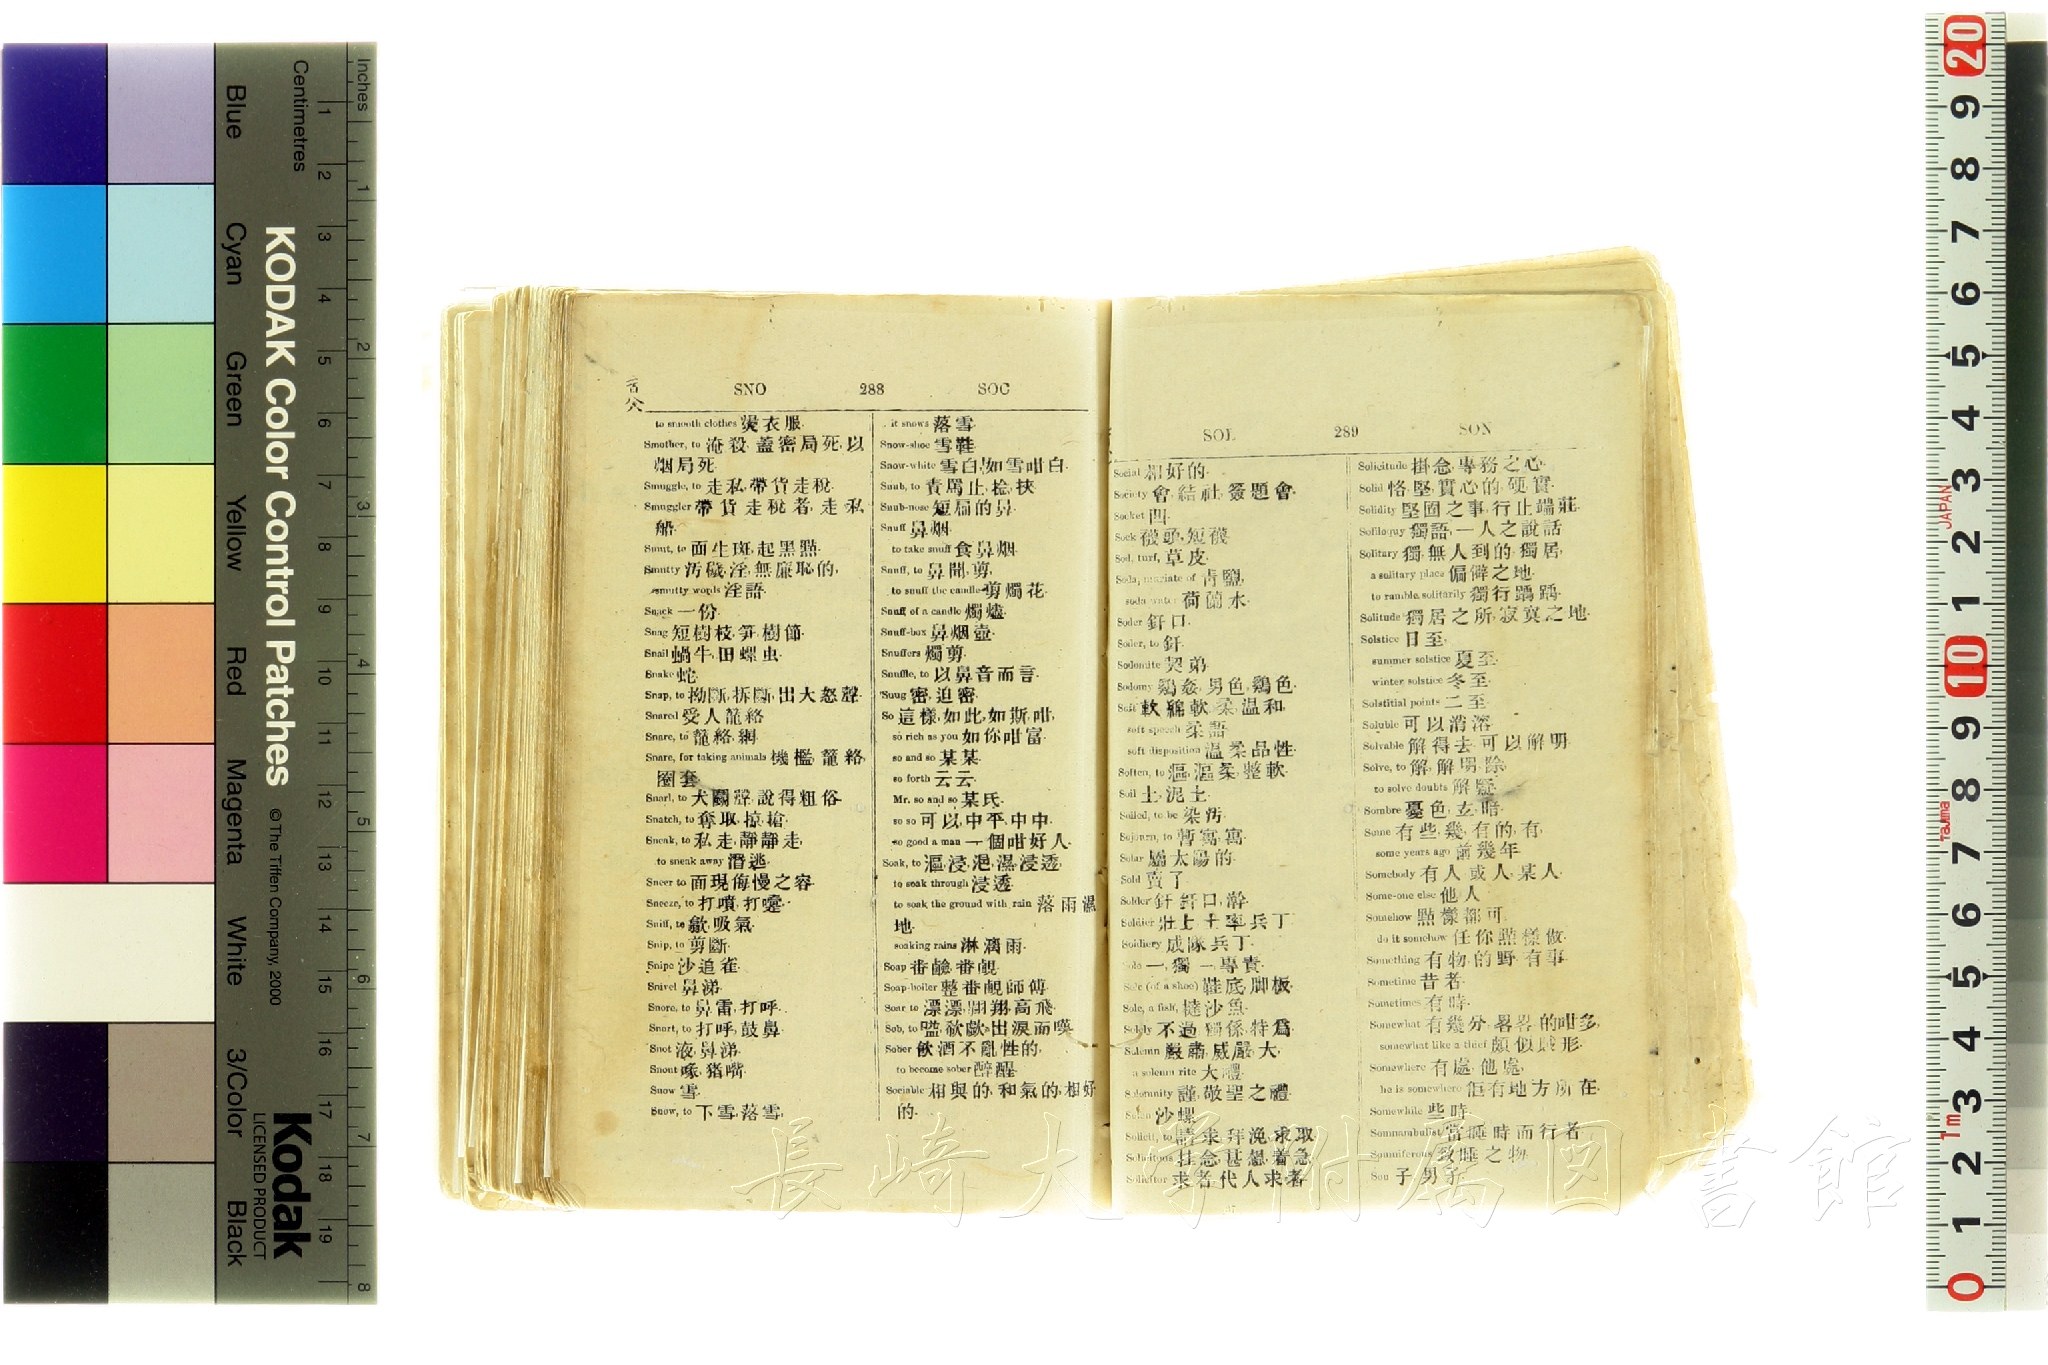 SNO 288 SOC
to smooth clothes 燙衣服.
Smother, to 淹殺, 蓋密局死, 以
烟局死.
Smuggle, to 走私, 帶貨走稅.
Smuggler 帶貨走稅者, 走私
船.
Smut, to 面生斑, 起黑點.
Smutty 汚穢, 淫, 無廉恥的,
smutty words 淫語.
Snack 一份.
Snag 短樹枝, 笋, 樹節.
Snail 蝸牛, 田螺虫.
Snake 蛇.
Snap, to 拗斷, 拆斷, 出大怒聲.
Snared 受人籠絡.
Snare, to 籠絡, 網.
Snare, for taking animals 機檻, 籠絡,
圈套.
Snarl, to 犬鬭聲, 說得粗俗.
Snatch, to 奪取, 掠, 搶.
Sneak, to 私走, 靜靜走,
to sneak away 潛逃.
Sneer to 面現侮慢之容.
Sneeze, to 打噴, 打嚏.
Sniff, to 歙, 吸氣.
Snip, to 剪斷.
Snipe 沙追雀.
Snivel 鼻涕.
Snore, to 鼻雷, 打呼.
Snort, to 打呼, 鼓鼻.
Snot 液, 鼻涕.
Snout 喙, 猪嘴.
Snow 雪.
Snow, to 下雪, 落雪,
it snows 落雪.
Snow-shoe 雪鞋.
Snow-white 雪白, 如雪咁白.
Snub, to 責罵止, 捡, 挾.
Snub-nose 短扁的鼻.
Snuff 鼻烟.
to take snuff 食鼻烟.
Snuff, to 鼻聞, 剪,
to snuff the candle 剪燭花.
Snuff of a candle 燭燼.
Snuff-box 鼻烟壺.
Snuffers 燭剪.
Snuffle, to 以鼻音而言.
Snug 密, 迫密.
So 這樣, 如此, 如斯, 咁,
so rich as you 如你咁富.
so and so 某某.
so forth 云云.
Mr. so and so 某氏.
so so 可以, 中平, 中中.
so good a man 一個咁好人.
Soak, to 漚, 浸, 浥, 濕, 浸透.
to soak through 浸透.
to soak the ground with rain 落雨濕
地.
soaking rains 淋漓雨.
Soap 番鹼, 番梘.
Soap-boiler 整番梘師傅.
Soar to 漂漂, 翺翔, 高飛.
Sob, to 嗌, 欷歔, 出淚而嘆.
Sober 飲酒不亂性的,
to become sober 醉醒.
Sociable 相與的, 和氣的, 相好
的.
SOL 289 SON
Social 相好的.
Society 會, 結社, 簽題會.
Socket 凹.
Sock 襪頭, 短襪.
Sod, turf, 草皮.
Soda, muriate of 肯鹽,
soda water 荷蘭水.
Soder 釬口.
Soder, to 釬.
Sodomite 契弟.
Sodomy 鷄姦, 男色, 鷄色.
Soft 軟, 綿軟, 柔, 温和,
soft speech 柔語.
soft disposition 温柔品性.
Soften, to 漚, 温柔, 整軟.
Soil 土, 泥土.
Soiled, to be 染汚.
Sojourn, to 暫寓, 寓.
Solar 屬太陽的.
Sold 賣了.
Solder 釬, 釬口, 澣.
Soldier 壯士, 士率, 兵丁.
Soldiery 成隊兵丁.
Sole 一, 獨一, 專責.
Sole (of a shoe) 鞋底, 脚板.
Sole, a fish, 撻沙魚.
Solely 不過, 獨係, 特爲.
Solemn 嚴肅, 威嚴, 大,
a solemn rite 大禮.
Solemnity 謹, 敬聖之禮.
沙螺.
Solicit, to 請求, 拜浼, 求取.
Solicitous 挂念, 甚想, 着急.
Solicitor 求者, 代人求者.
Solicitude 掛念, 專務之心.
Solid 恪, 堅, 實心的, 硬, 實.
Solidity 堅固之事, 行止端莊.
Soliloquy 獨語, 一人之說話.
Solitary 獨, 無人到的, 獨居,
a solitary place 偏僻之地.
to ramble solitarily 獨行踽踽.
Solitude 獨居之所, 寂寞之地.
Solstice 日至,
summer solstice 夏至.
winter solstice 冬至.
Solstitial points 二至.
Soluble 可以消溶.
Solvable 解得去, 可以解明.
Solve, to 解, 解明, 除,
to solve doubts 解疑.
Sombre 憂色, 玄暗.
Some 有些, 幾, 有的, 有,
some years ago 前幾年.
Somebody 有人, 或人, 某人.
Some-one else 他人.
Somehow 點樣都可,
do it somehow 任你點樣做.
Something 有物, 的野, 有事.
Sometime 昔者.
Sometimes 有時.
Somewhat 有幾分, 畧畧, 的咁多,
somewhat like a thief 頗似賊形.
Somewhere 有處, 他處,
he is somewhere 佢有地方所在.
Somewhile 些時.
Somnambulist 當睡時而行者.
Somniferous 致睡之物.
Son 子, 男子.
長崎大学附属図書館
Blue Cyan Green Yellow Red Magenta White 3/Color Black
KODAK Color Control Patches © The Tiffen Company, 2000
Kodak
LICENSED PRODUCT
Centimetres 1 2 3 4 5 6 7 8 9 10 11 12 13 14 15 16 17 18 19
Inches 1 2 3 4 5 6 7 8
20 9 8 7 6 5 4 3 2 1 10 9 8 7 6 5 4 3 2 1 0
JAPAN
Tajima
1m